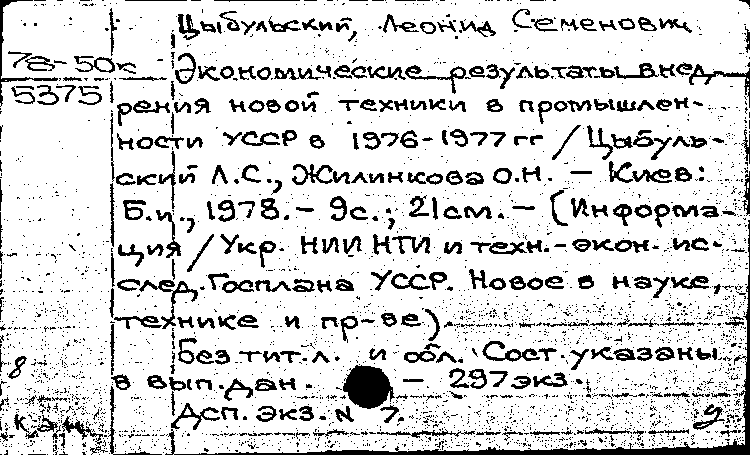 Цыбульский, Леонид Семенович
78-50к
Экономические результаты внед-
5375
рения новой техники в промышлен-
ности УССР в 1976-1977 гг / Цыбуль-
ский Л.С., Жилинкова О.Н. — Киев:
Б.и., 1978. - 9с.; 21см. - (Информа-
ция / Укр. НИИ НТИ и техн.-экон. ис-
след. Госплана УССР. Новое в науке,
технике и пр-ве).
Без тит.л. и обл. Сост. указаны
8
в вып.дан. — 297 экз.
Дсп. Экз. N 7.
у